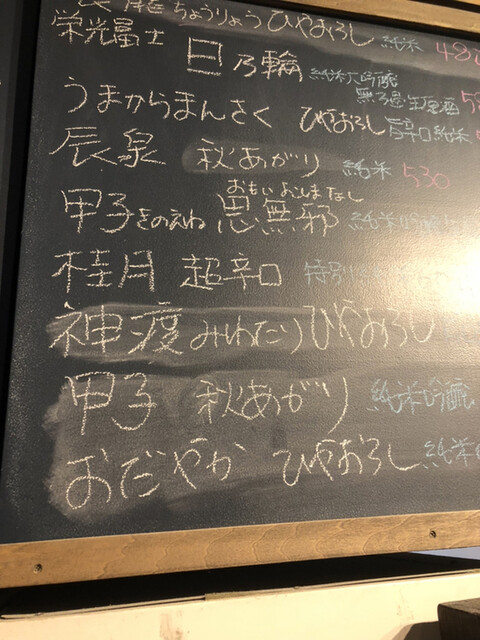 ちょうりょう ひやおろし 純米 480
栄光冨士 日乃輪 純米大吟醸 無ろ過生原酒
うまからまんさく ひやおろし 旨辛口純米
辰泉 秋あがり 純米 530
おもいよこしまなし
甲子 きのえね 思無邪 純米吟醸
桂月 超辛口 特別
神渡 みわたり ひやおろし
甲子 秋あがり 純米吟醸
おだやか ひやおろし 純米